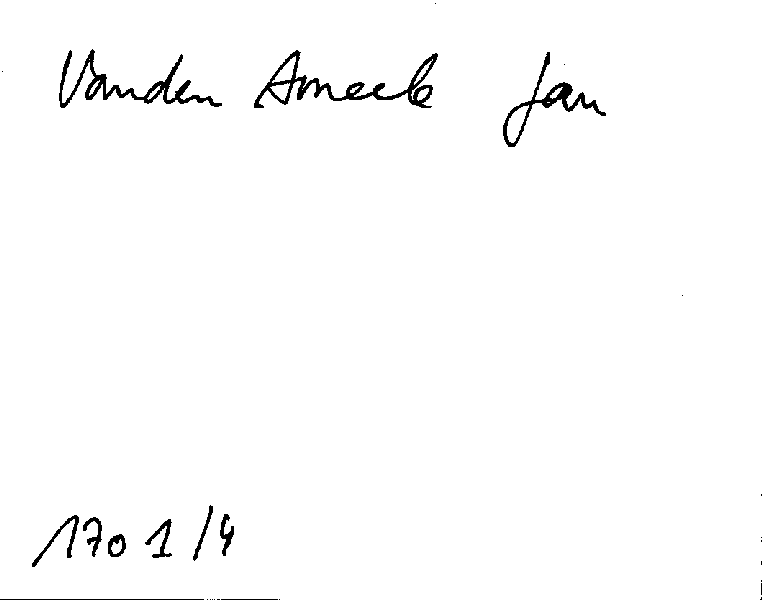 Vanden Ameele Jan
170 1/4